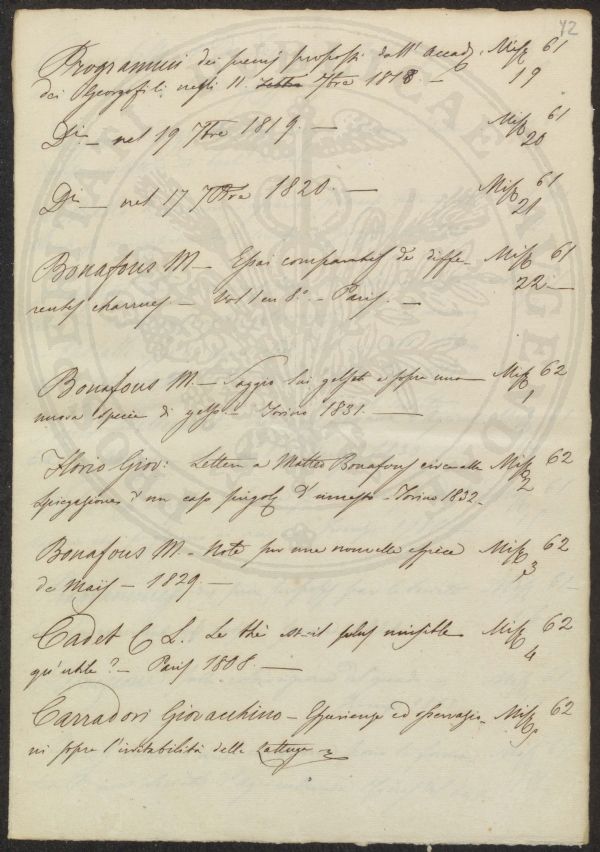 42
Programmi dei premj proposti dall' Accad. Misc. 61
dei Georgofili negli 11 7bre 1818. — 19
Do — nel 19 7bre 1819. — Misc. 61
20
Do — nel 17 7bre 1820. — Misc. 61
21
Bonafous M. — Essai comparatif de diffe- Misc. 61
rentes charrues — Vol 1 en 8.o — Paris. — 22
Bonafous M. — Saggio sui gelsi e sopra una Misc. 62
nuova specie di gelso — Torino 1831. — 1
Florio Giov: Lettera a Matteo Bonafous circa alla Misc. 62
spiegazione d'un caso singol. d'innesto — Torino 1832 — 2
Bonafous M. — Note sur une nouvelle espèce Misc. 62
de Maïs — 1829 — 3
Cadet C L. Le thé est-il plus nuisible Misc. 62
qu'utile? — Paris 1808. — 4
Carradori Giovacchino — Esperienze ed osservazio- Misc. 62
ni sopra l'irritabilità della Lattuga — 5